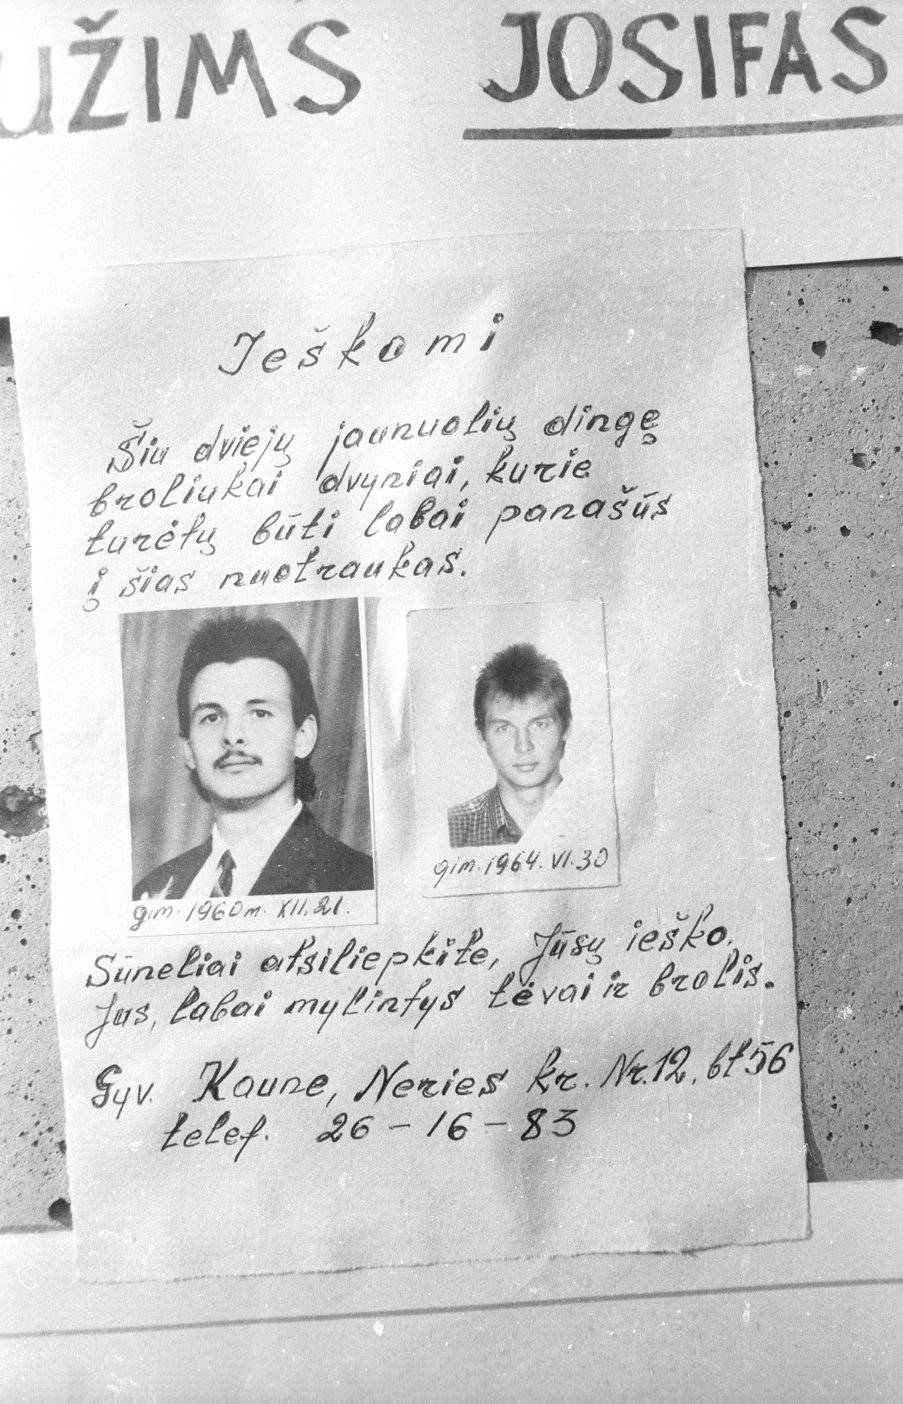 UŽIMS JOSIFAS
Ješkomi
Šiu dviejų jaunuolių dingę
broliukai dvyniai, kurie
turėtų būti labai panašūs
į šias nuotraukas.
gim. 1960m. XII. 21.
gim. 1964. VI. 30
Sūneliai atsiliepkite, Jūsų ieško,
Jus, labai mylintys tėvai ir brolis.
Gyv. Kaune, Neries kr. Nr. 12, bt 56
telef. 26-16-83